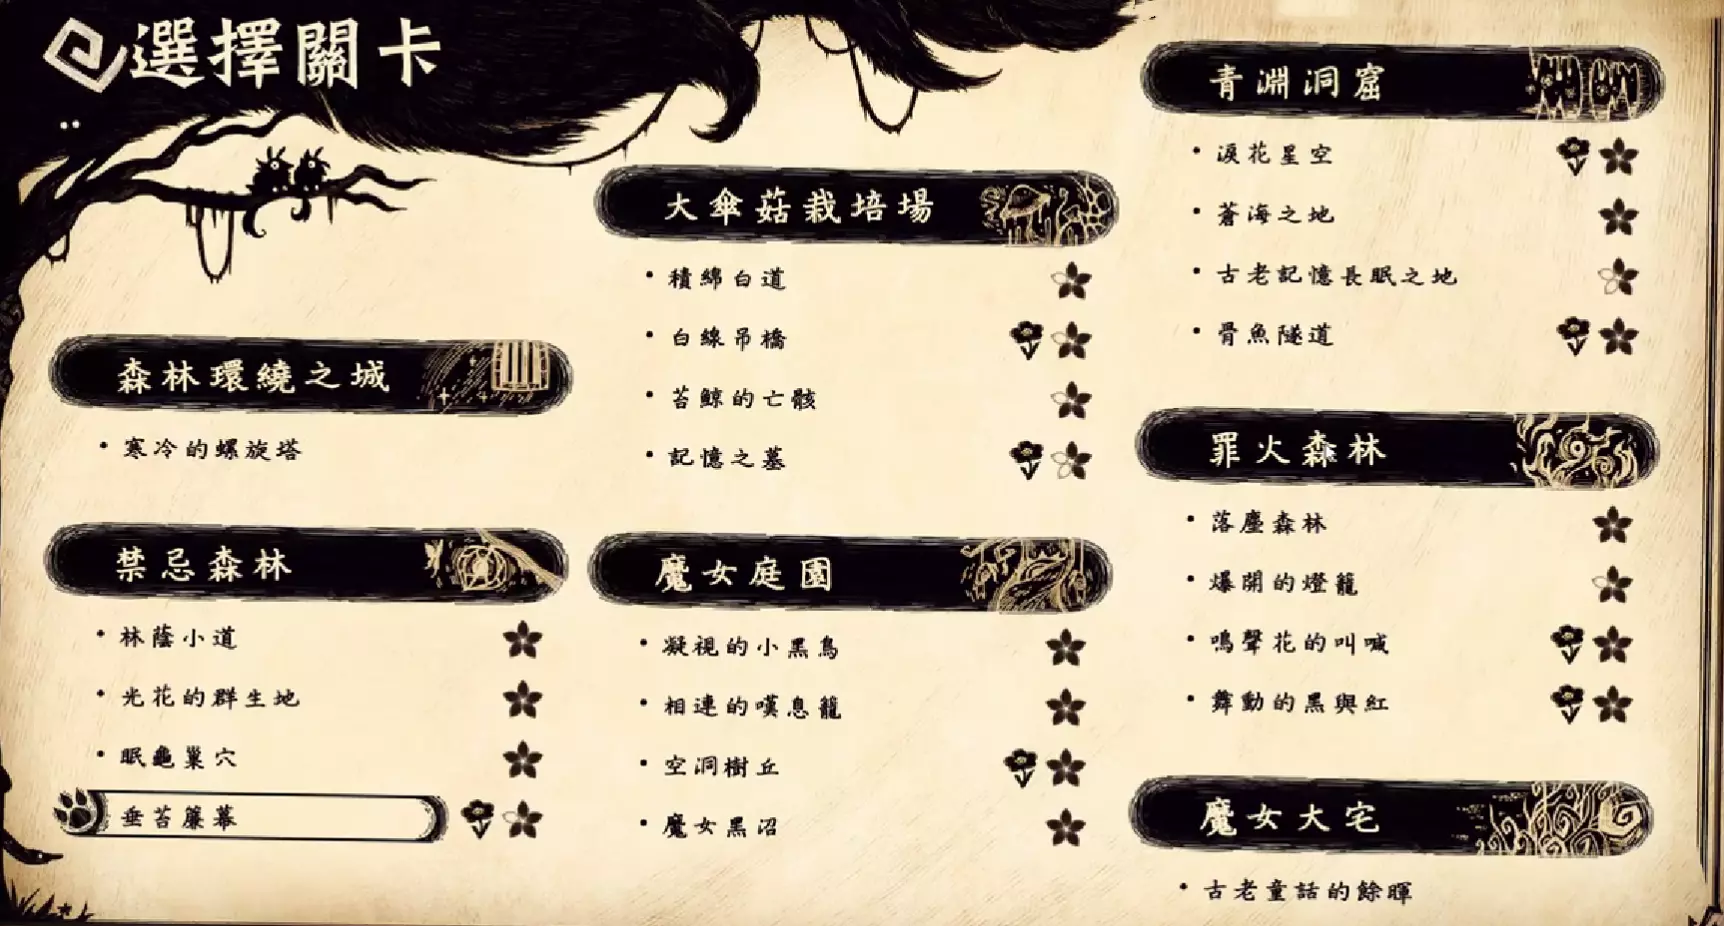 選擇關卡
森林環繞之城
寒冷的螺旋塔
禁忌森林
林蔭小道
光花的群生地
眠龜巢穴
垂苔簾幕
大傘菇栽培場
積綿白道
白線吊橋
苔鯨的亡骸
記憶之墓
魔女庭園
凝視的小黑鳥
相連的嘆息籠
空洞樹丘
魔女黑沼
青淵洞窟
淚花星空
蒼海之地
古老記憶長眠之地
骨魚隧道
罪火森林
落塵森林
爆開的燈籠
鳴聲花的叫喊
舞動的黑與紅
魔女大宅
古老童話的餘暉